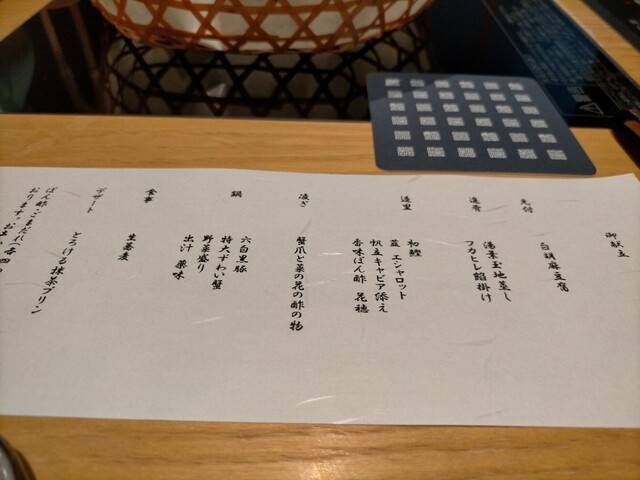 御献立
先付
白胡麻豆腐
進肴
湯葉玉地蒸し
フカヒレ餡掛け
造里
初鰹
茲 エシャロット
帆立キャビア添え
香味ぽん酢 花穂
凌ぎ
蟹爪と菜の花の酢の物
鍋
六白黒豚
特大ずわい蟹
野菜盛り
出汁 薬味
食事
生蕎麦
デザート
とろける抹茶プリン
ぽん酢・ごまだれ
おります。お